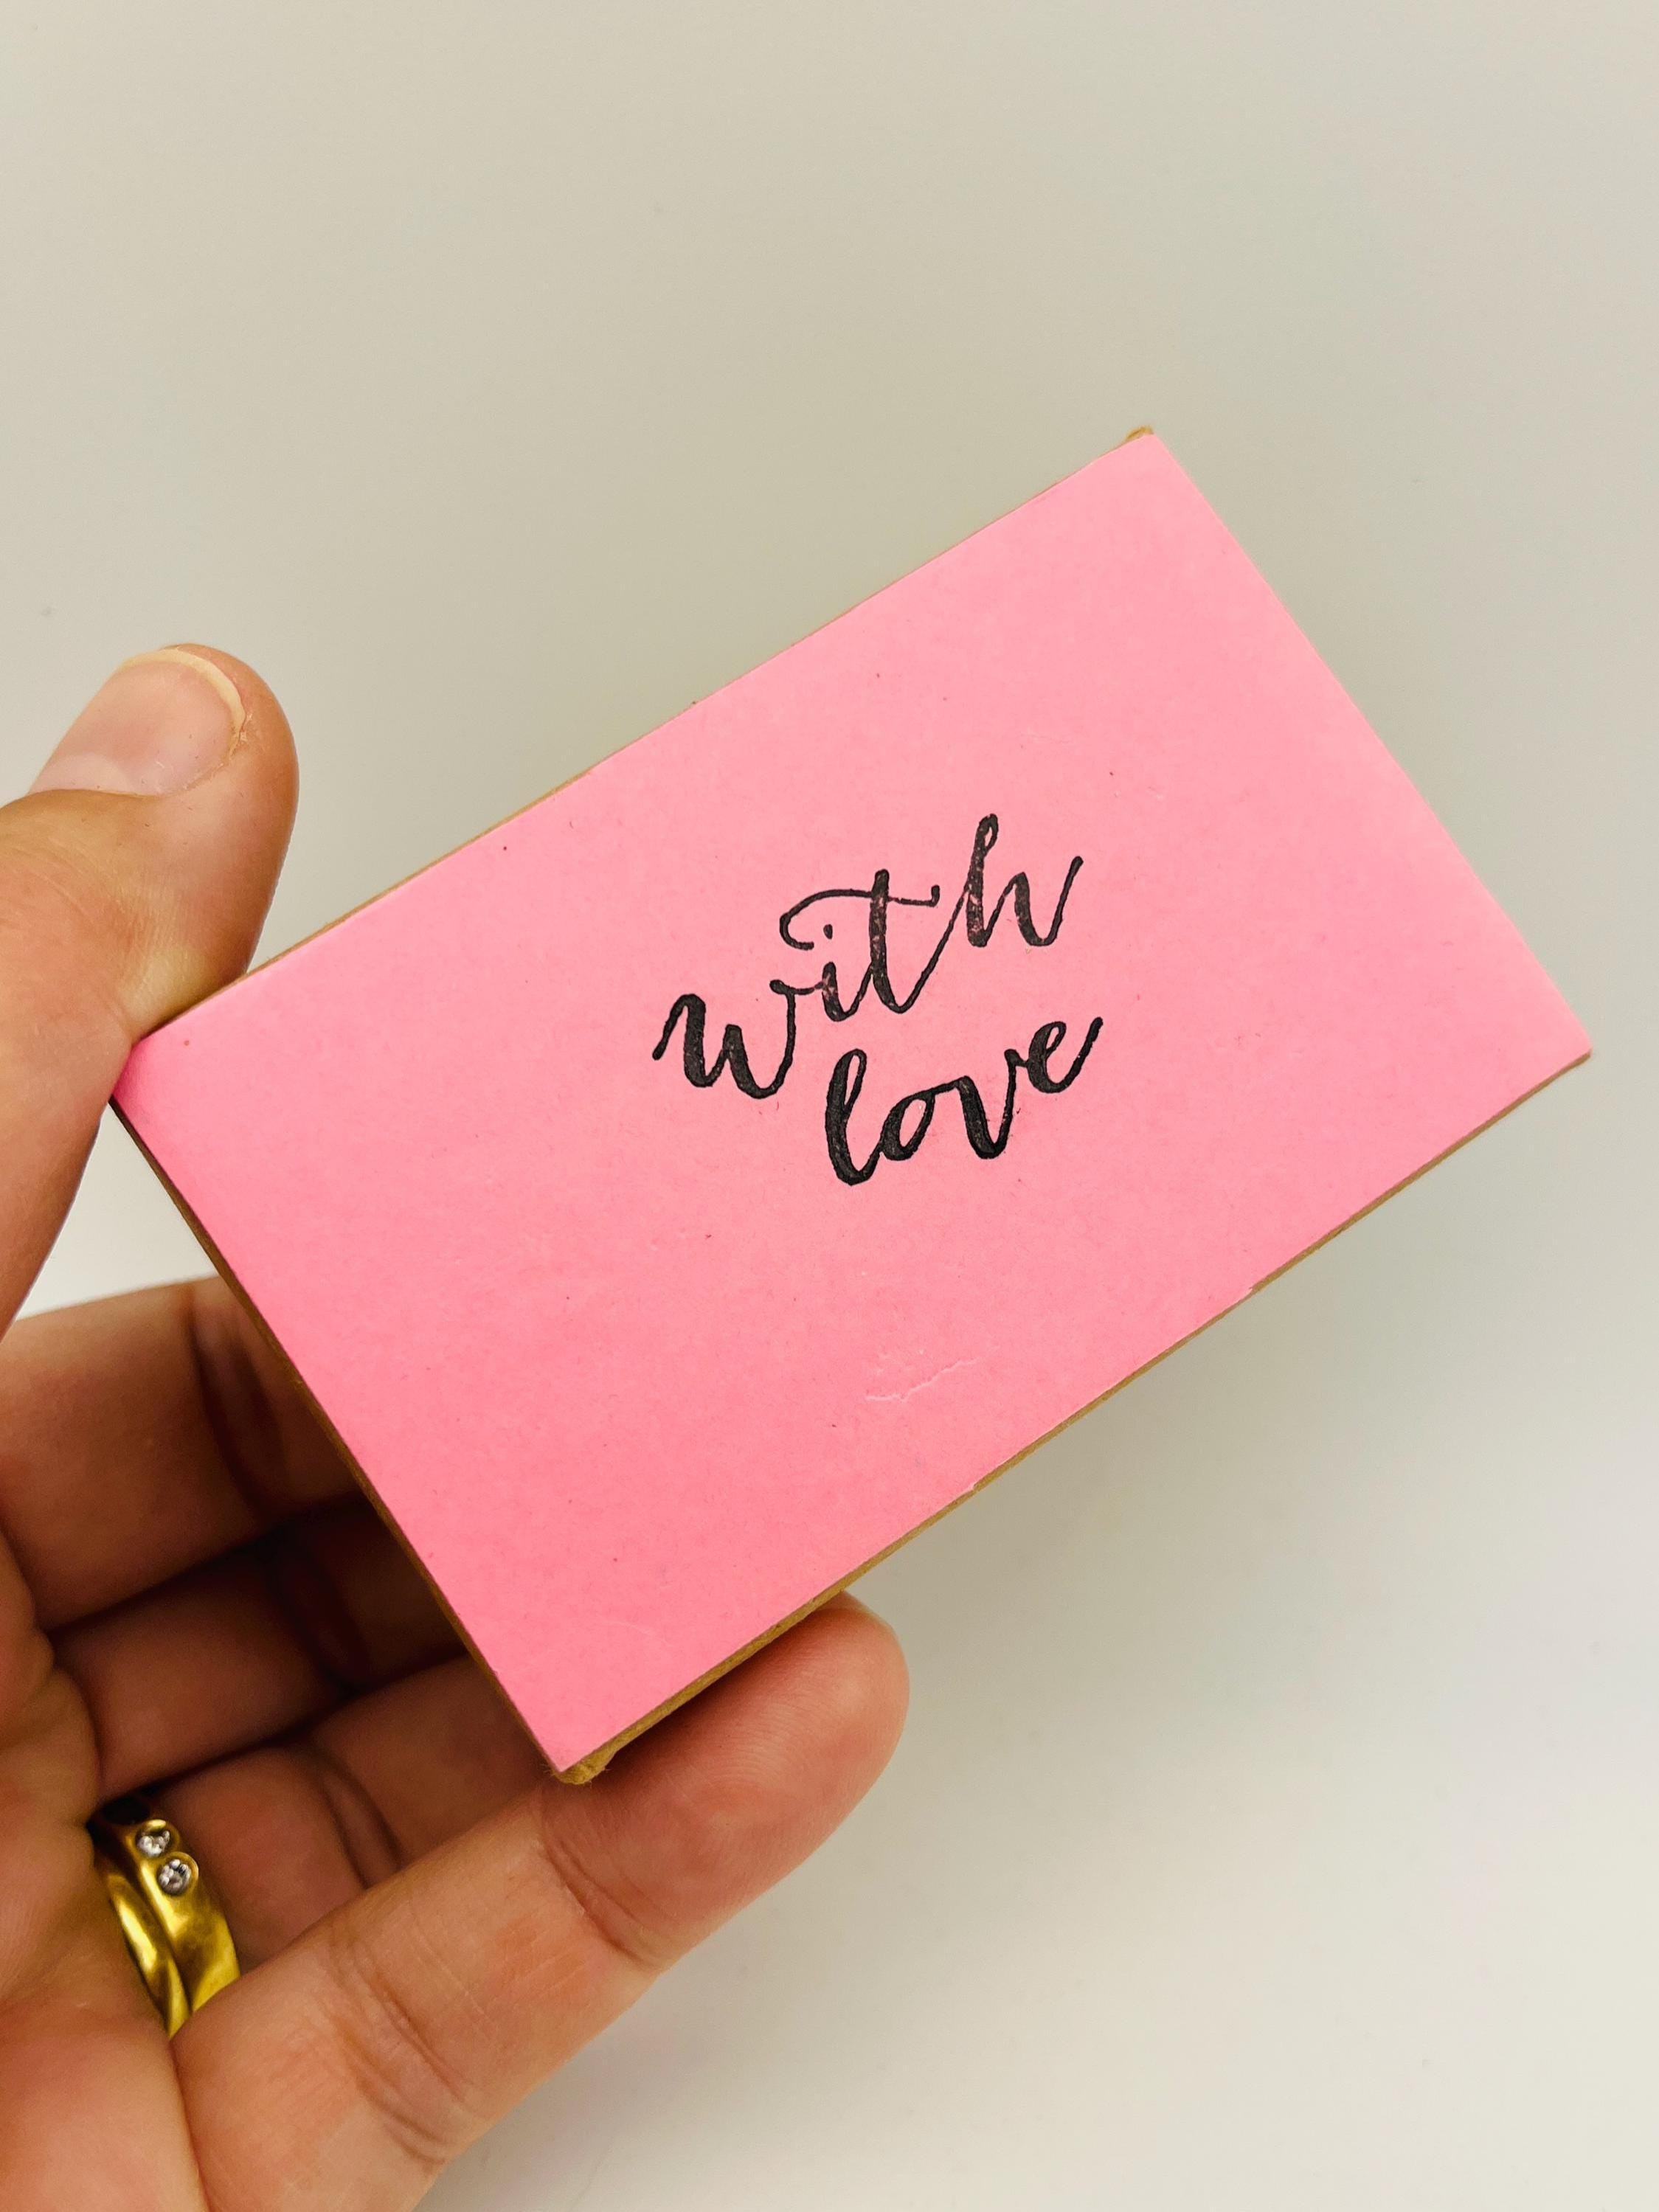 with
love